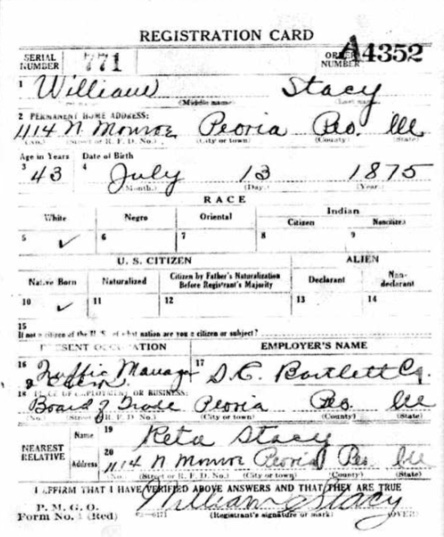 REGISTRATION CARD
SERIAL NUMBER 771 ORDER NUMBER A4352
1 William Stacy
(Middle name) (Last name)
2 PERMANENT HOME ADDRESS:
1114 N Monroe Peoria Peo. Ill
(No.) (Street or R. F. D. No.) (City or town) (County) (State)
Age in Years Date of Birth
3 43 4 July 13 1875
(Month.) (Day.) (Year.)
RACE
White Negro Oriental Indian
Citizen Noncitizen
5 ✓ 6 7 8 9
U. S. CITIZEN ALIEN
Native Born Naturalized Citizen by Father's Naturalization Before Registrant's Majority Declarant Non-declarant
10 ✓ 11 12 13 14
15
If not a citizen of the U. S. of what nation are you a citizen or subject?
PRESENT OCCUPATION EMPLOYER'S NAME
16 Traffic Manager 17 S.C. Bartlett Co.
18 PLACE OF EMPLOYMENT OR BUSINESS:
Board of Trade Peoria Peo. Ill
(No.) (Street or R. F. D. No.) (City or town) (County) (State)
NEAREST RELATIVE
Name 19 Reta Stacy
Address 20 1114 N Monroe Peoria Peo. Ill
(No.) (Street or R. F. D. No.) (City or town) (County) (State)
I AFFIRM THAT I HAVE VERIFIED ABOVE ANSWERS AND THAT THEY ARE TRUE
P. M. G. O.
Form No. 1 (Red) William Stacy
(Registrant's signature or mark) (OVER)